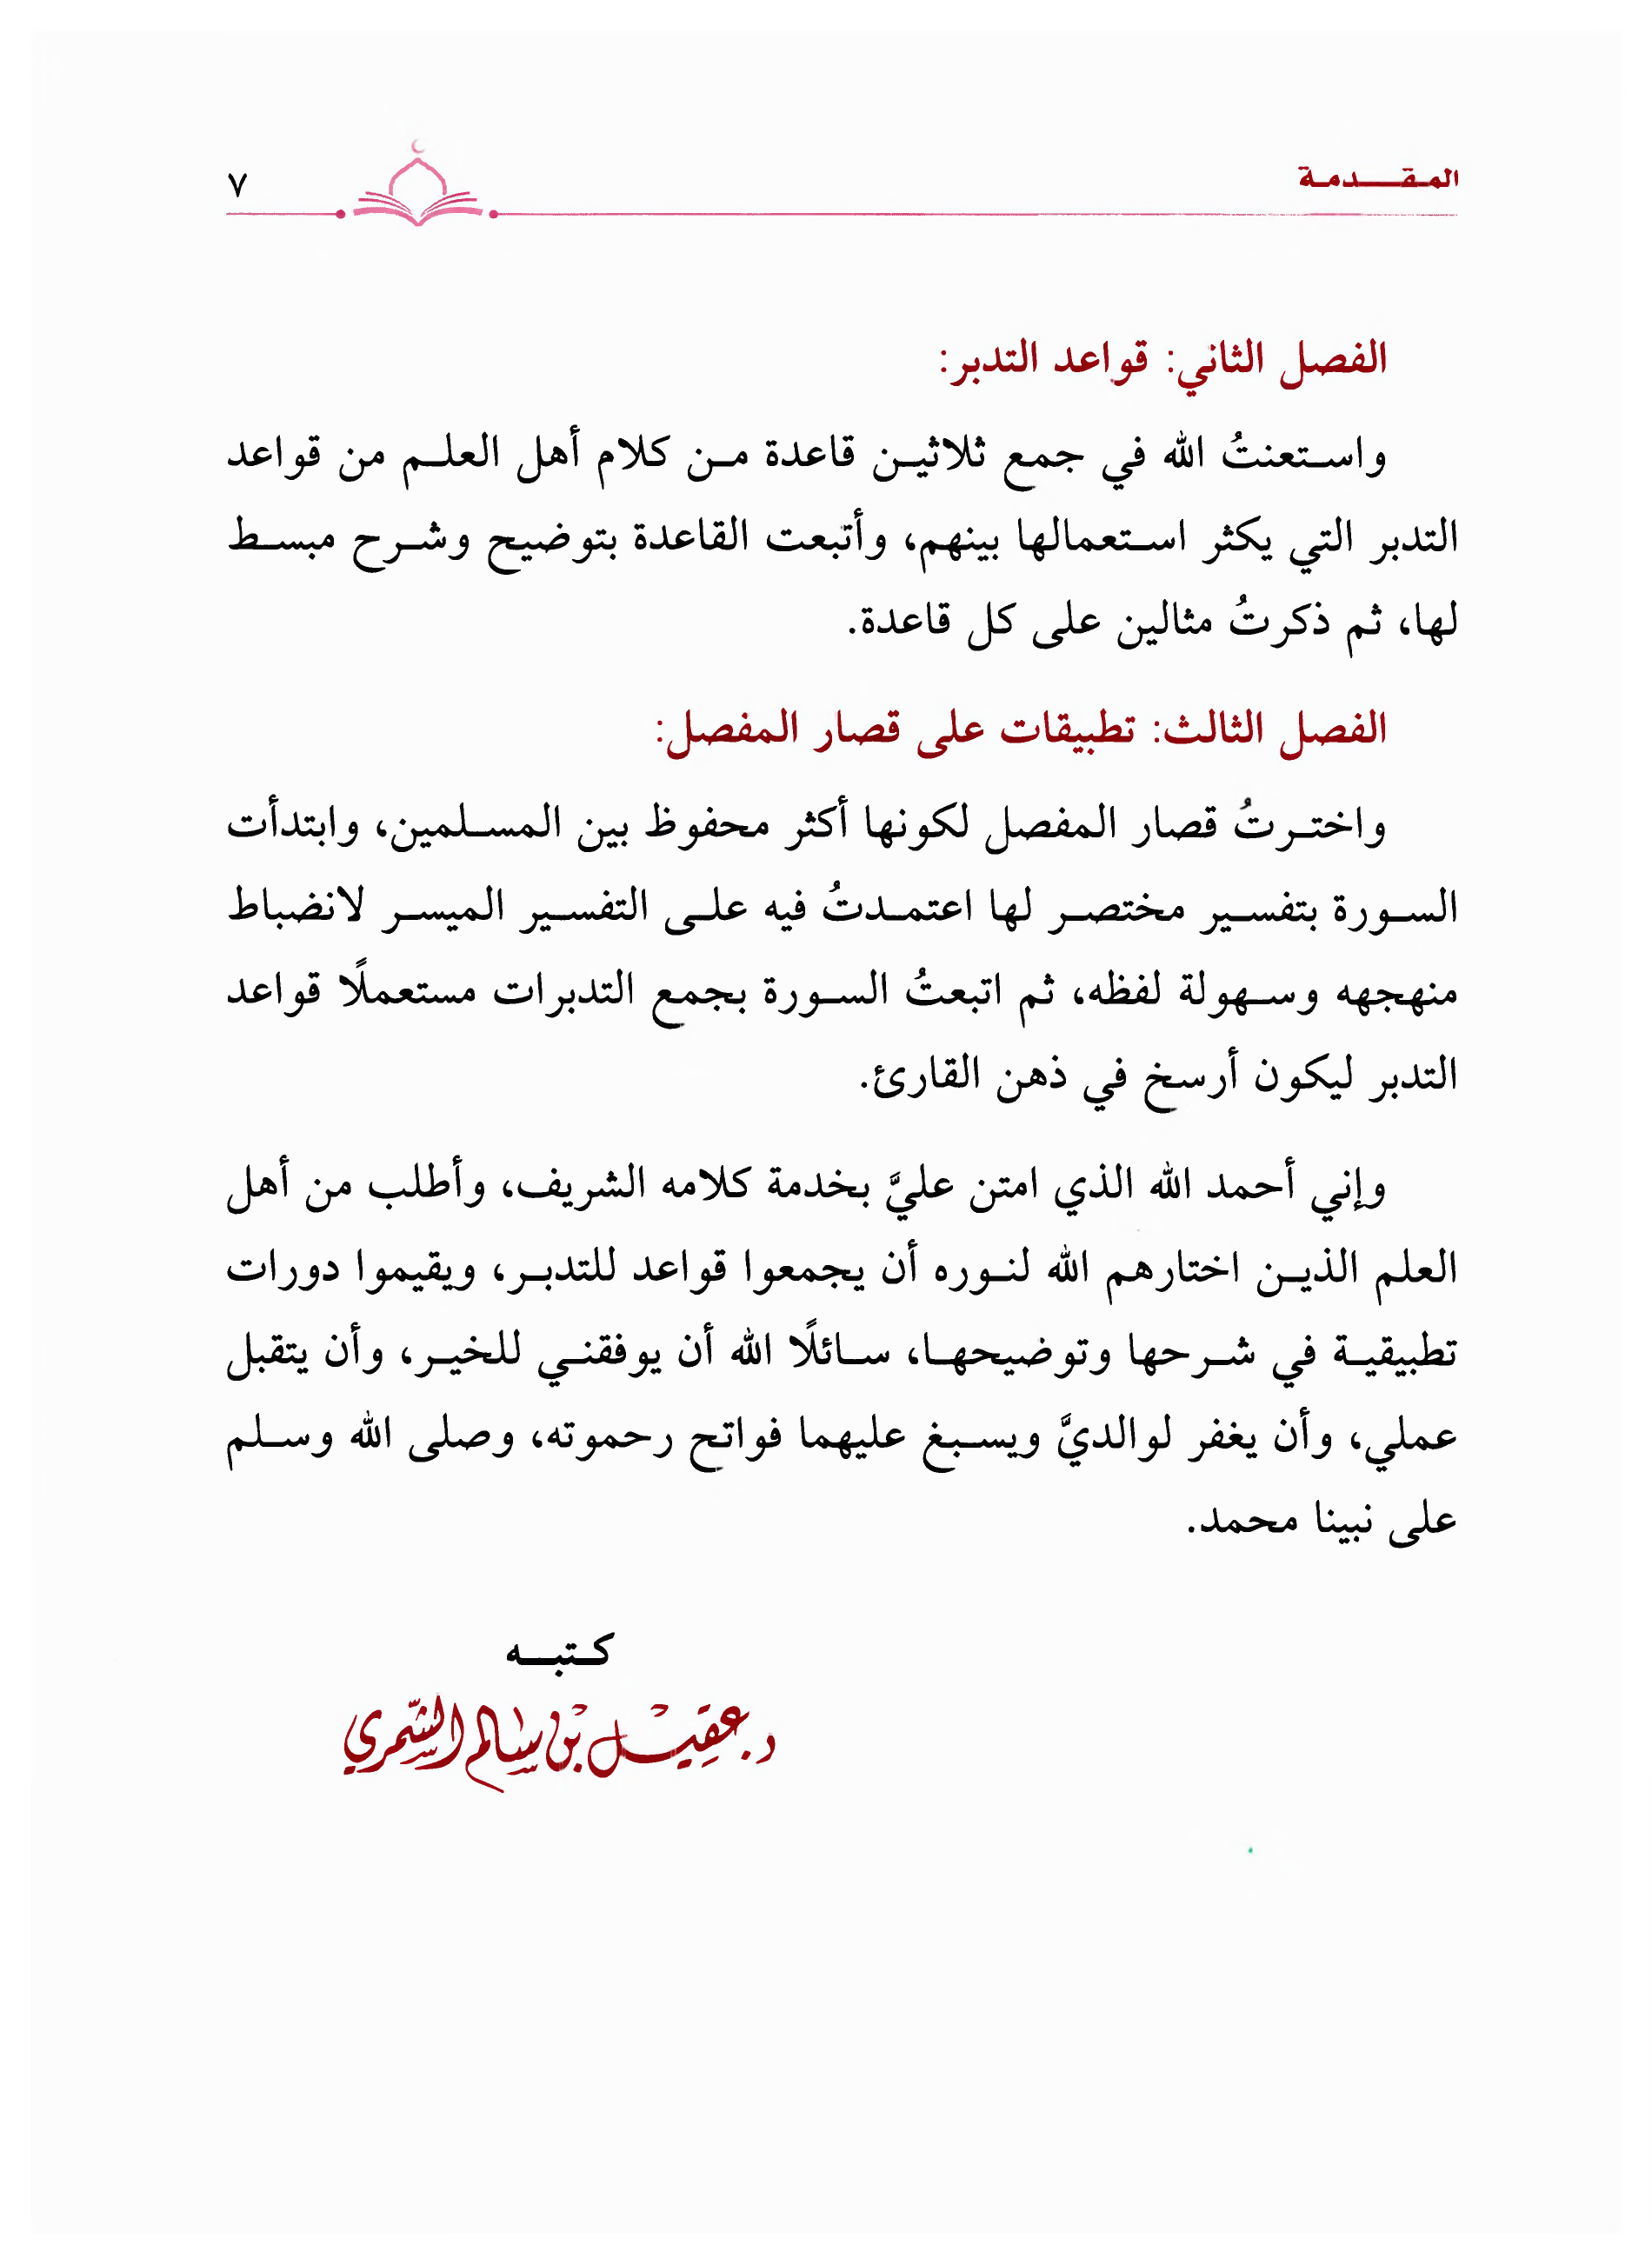 المقدمة
٧
الفصل الثاني: قواعد التدبر:
واستعنتُ الله في جمع ثلاثين قاعدة من كلام أهل العلم من قواعد
التدبر التي يكثر استعمالها بينهم، وأتبعت القاعدة بتوضيح وشرح مبسط
لها، ثم ذكرتُ مثالين على كل قاعدة.
الفصل الثالث: تطبيقات على قصار المفصل:
واخترتُ قصار المفصل لكونها أكثر محفوظ بين المسلمين، وابتدأت
السورة بتفسير مختصر لها اعتمدتُ فيه على التفسير الميسر لانضباط
منهجهه وسهولة لفظه، ثم اتبعتُ السورة بجمع التدبرات مستعملًا قواعد
التدبر ليكون أرسخ في ذهن القارئ.
وإني أحمد الله الذي امتن عليَّ بخدمة كلامه الشريف، وأطلب من أهل
العلم الذين اختارهم الله لنوره أن يجمعوا قواعد للتدبر، ويقيموا دورات
تطبيقية في شرحها وتوضيحها، سائلًا الله أن يوفقني للخير، وأن يتقبل
عملي، وأن يغفر لوالديَّ ويسبغ عليهما فواتح رحموته، وصلى الله وسلم
على نبينا محمد.
كتبه
د. عقيل بن سالم الشمري